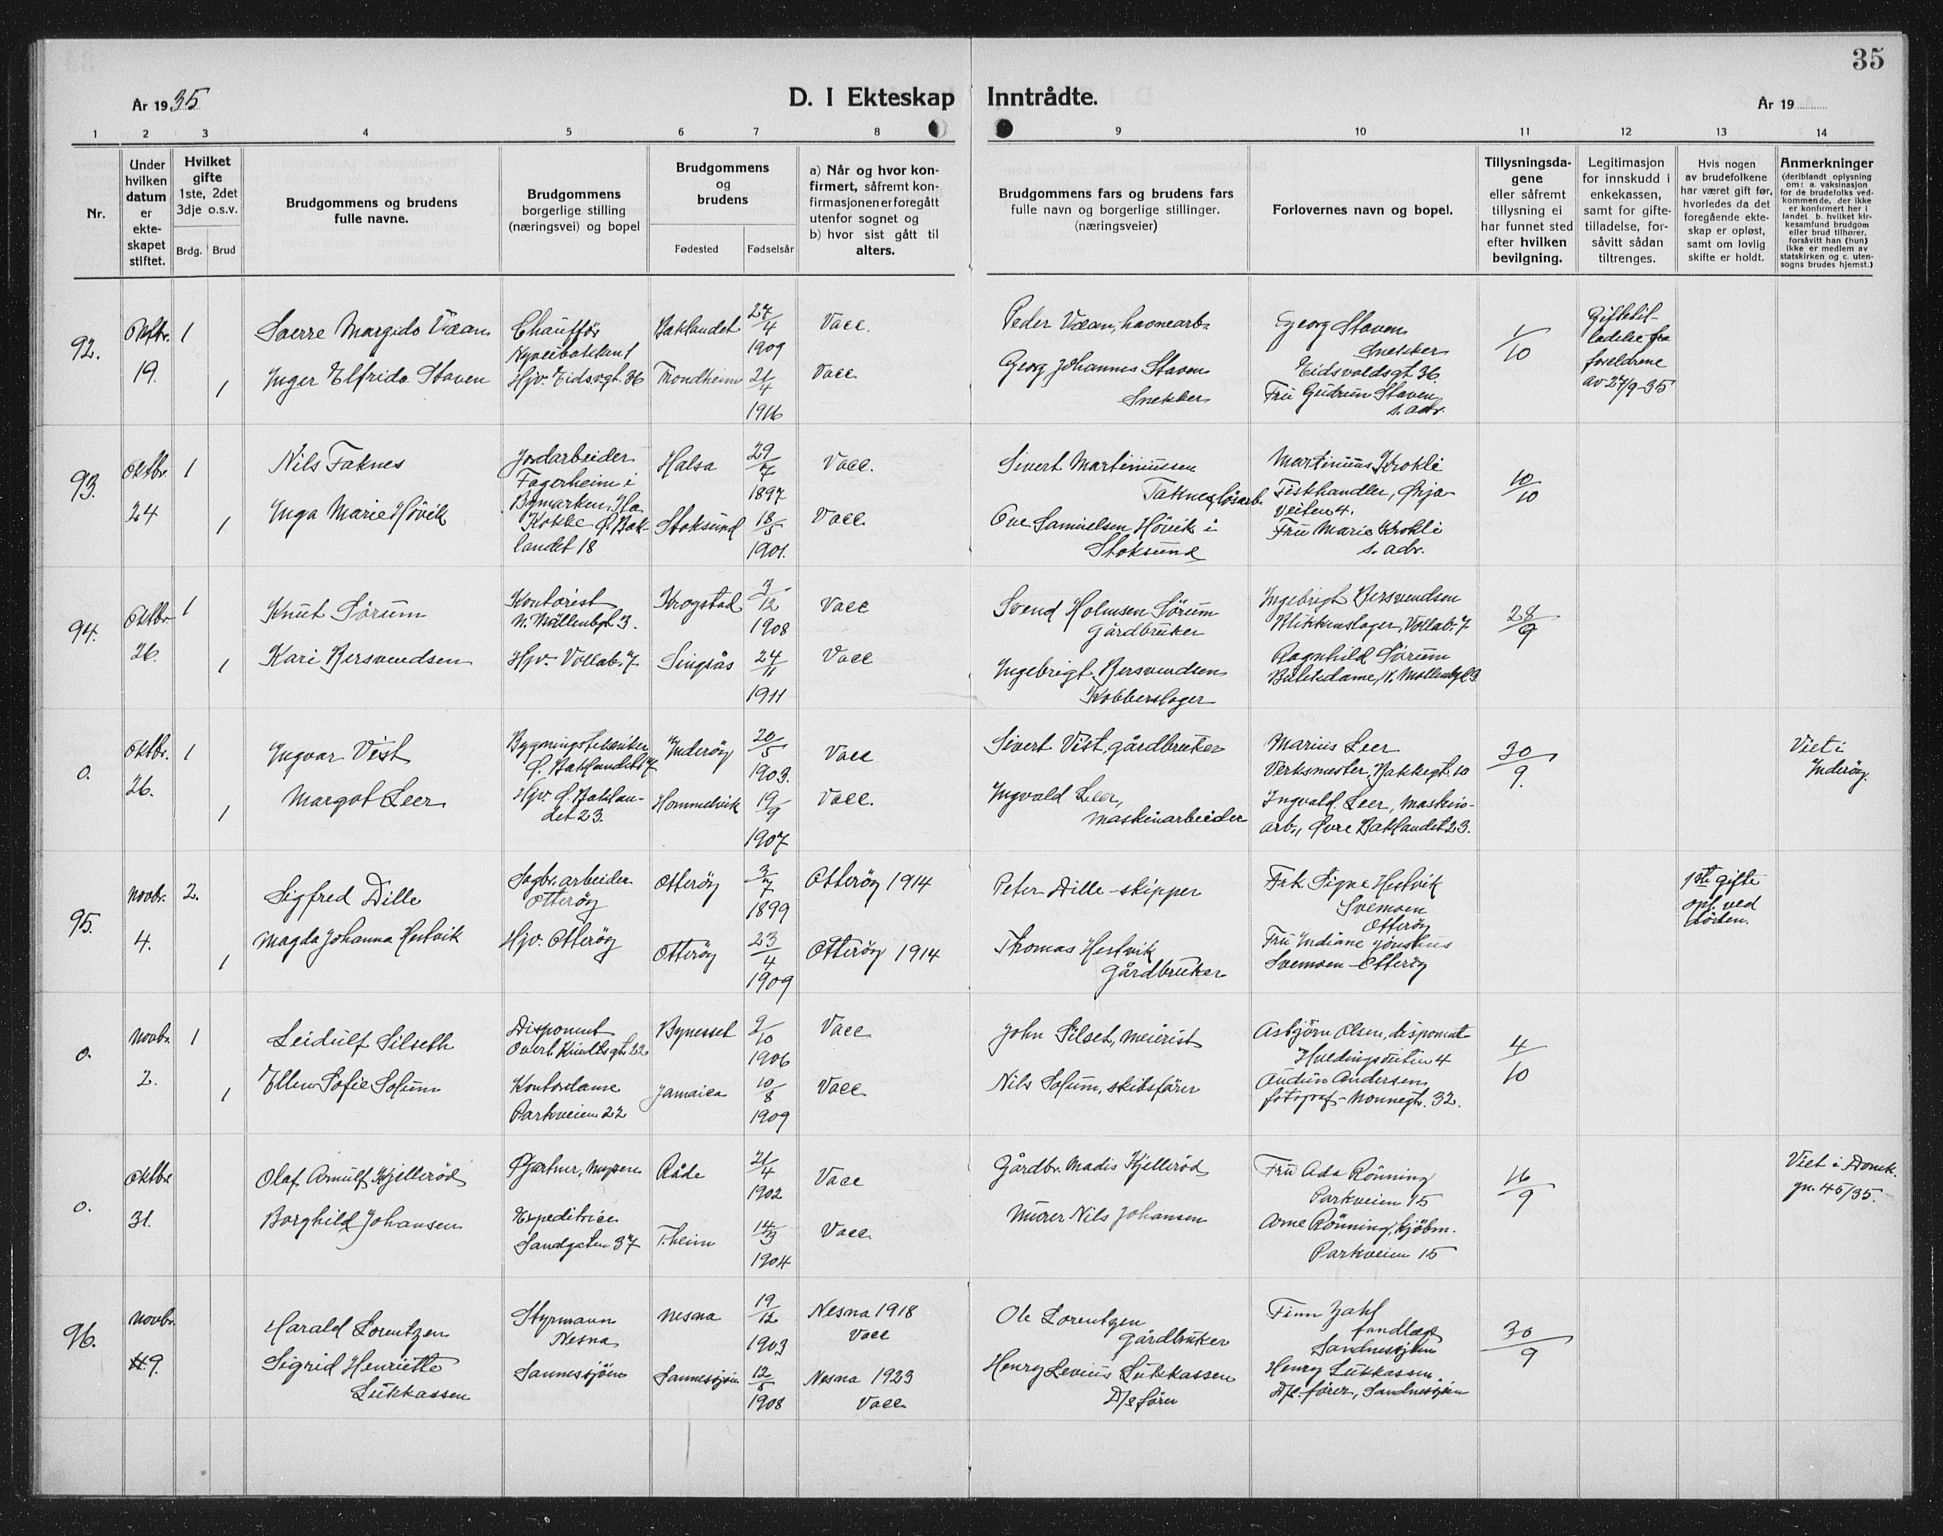 35
År 1935
D. I Ekteskap Inntrådte.
År 19
1 2 3 4 5 6 7 8 9 10 11 12 13 14
Nr.
Under hvilken datum er ekteskapet stiftet.
Hvilket gifte 1ste, 2det 3dje o.s.v.
Brdg. Brud
Brudgommens og brudens fulle navne.
Brudgommens borgerlige stilling (næringsvei) og bopel
Brudgommens og brudens
Fødested Fødselsår
a) Når og hvor konfirmert, såfremt konfirmasjonen er foregått utenfor sognet og b) hvor sist gått til alters.
Brudgommens fars og brudens fars fulle navn og borgerlige stillinger. (næringsveier)
Forlovernes navn og bopel.
Tillysningsdagene eller såfremt tillysning ei har funnet sted efter hvilken bevilgning.
Legitimasjon for innskudd i enkekassen, samt for giftetilladelse, forsåvitt sådan tiltrenges.
Hvis nogen av brudefolkene har været gift før, hvorledes da det foregående ekteskap er opløst, samt om lovlig skifte er holdt.
Anmerkninger (deriblandt oplysning om: a. vaksinasjon for de brudefolks vedkommende, der ikke er konfirmert her i landet b. hvilket kirkesamfund brudgom eller brud tilhører, forsåvitt han (hun) ikke er medlem av statskirken og c. utensogns brudes hjemst.)
92. Oktbr. 19. 1
Sverre Margido Væan
Chauffør
Baklandet 27/4 1909 Vacc.
Peder Væan, havnearb.
Georg Staven
Snekker
Eidsvoldsgt. 36.
1/10
Giftetil-
ladelse fra
foreldrene
av 27/9-35
1 Inger Elfrida Staven
Hjv. Eidsvgt. 36
Trondheim 21/4 1916 Vacc.
Georg Johannes Staven
Snekker
Fru Gudrun Staven
s. adr.
93. Oktbr. 24 1
Nils Taknes
Jordarbeider
Fagerheim i
Bymarken
Halsa 29/7 1897 Vacc.
Sivert Martinussen
Taknes
Martinius Krokli
Fiskhandler, Ørja-
veiten 4.
10/10
1 Inga Marie Høvik
Kokke Ø. Bak-
landet 18
Stoksund 18/5 1901. Vacc.
Ove Samuelsen Høvik i
Stoksund
Fru Marie Krokli
s. adr.
94. Oktbr. 26. 1
Knut Sørum
Kontorist
N. Møllenbgt. 3.
Krogstad 3/12 1908 Vacc
Svend Holmsen Sørum
Gårdbruker
Ingebrigt Bersvendsen
Blikkenslager, Vollab. 7
28/9
1 Kari Bersvendsen
Hjv. Vollab. 7
Singsås 24/11 1911 Vacc
Ingebrigt Bersvendsen
Kobberslager
Ragnhild Sørum
Butikkdame, N. Møllenbgt. 3
0. Oktbr. 26. 1
Ingvar Vist
Bygningstekniker
Inderøy 20/5 1903. Vacc
Sivert Vist, gårdbruker
Marius Leer
Verksmester, Bakkegt. 10
30/9.
Viet i
Inderøy.
1 Margot Leer
Hjv. Ø. Baklan-
det 23.
Hommelvik 19/9 1907 Vacc.
Ingvald Leer,
maskinarbeider
Ingvald Leer, maskin-
arb., Øvre Baklandet 23.
95. Novbr. 4. 2.
Sigfred Dille
Sagbr. arbeider
Otterøy
Otterøy 3/7 1899 Otterøy 1914
Peter Dille - skipper
Frk. Signe Hestvik
Svemoen
Otterøy
1ste gifte
opl. ved
døden.
1 Magda Johanna Hestvik
Hjv. Otterøy
Otterøy 23/4 1909 Otterøy 1914
Thomas Hestvik
Gårdbruker
Fru Indiane
Svemoen - Otterøy
0. Novbr. 2. 1
Leidulf Silseth
Disponent
Bynesset 2/10 1906 Vacc
John Silset, meierist
Asbjørn Olsen, disponent
Hveldingsveiten 4
4/10
1 Ellen Sofie Solum
Kontordame
Parkveien 22
Jamaica 10/8 1909 Vacc
Nils Solum, skibsfører
Audun Andersen
fotograf - Nonnegt. 32.
0. Oktbr. 31.
Olaf Arnulf Kjellerød
Gartner, Mysen
Råde 21/4 1902 Vacc
Gårdbr. Madis Kjellerød
Fru Ada Rønning
Parkveien 15
16/9
Viet i Domk.
jn. 45/35.
Borghild Johansen
Expeditrice
Sandgaten 37
T.heim 14/3 1904 Vacc
Murer Nils Johansen
Arne Rønning, kjøbm.
Parkveien 15
96. Novbr. 9.
Harald Lorentzen
Styrmann
Nesna
Nesna 19/12 1903 Nesna 1918
Vacc
Ole Lorentzen
Gårdbruker
Finn Zahl
Sandnessjøen
30/9
Sigrid Henriette
Lukkassen
Sannessjøen
Sannessjøen 12/5 1908 Nesna 1923
Vacc
Henry Levius Lukkassen
D/s fører
Henry Lukkassen.
D/s. fører, Sandnessjøen